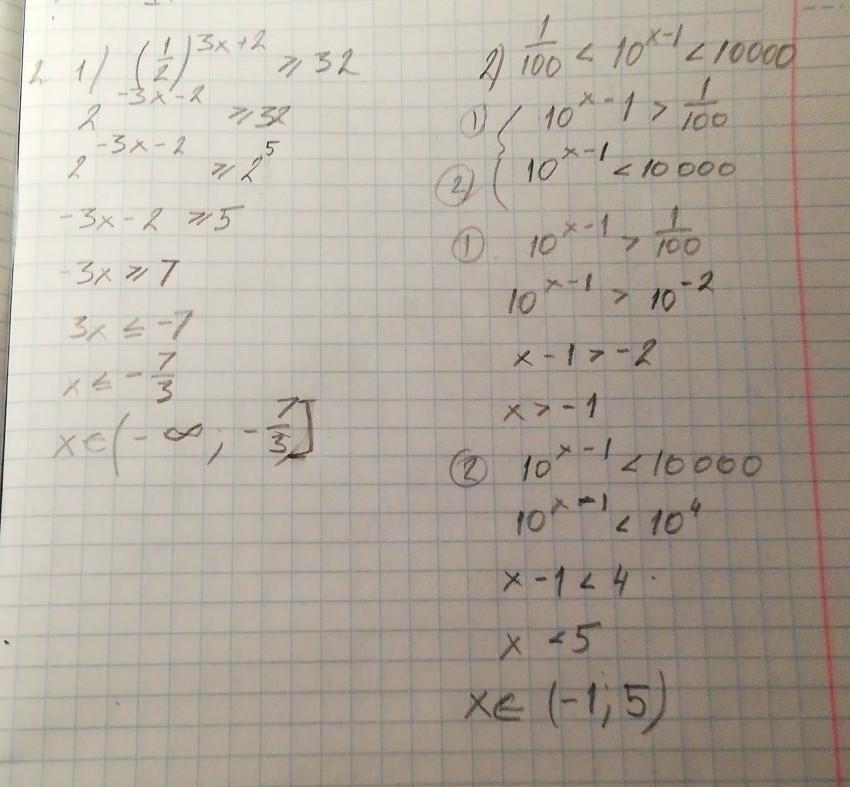 2 1) (1/2)^(3x+2) ⩾ 32
2^(-3x-2) ⩾ 32
2^(-3x-2) ⩾ 2^5
-3x-2 ⩾ 5
-3x ⩾ 7
3x ≤ -7
x ≤ -7/3
x∈(-∞; -7/3]
2) 1/100 < 10^(x-1) < 10000
① { 10^(x-1) > 1/100
② { 10^(x-1) < 10000
① 10^(x-1) > 1/100
10^(x-1) > 10^(-2)
x-1 > -2
x > -1
② 10^(x-1) < 10000
10^(x-1) < 10^4
x-1 < 4
x < 5
x∈ (-1; 5)